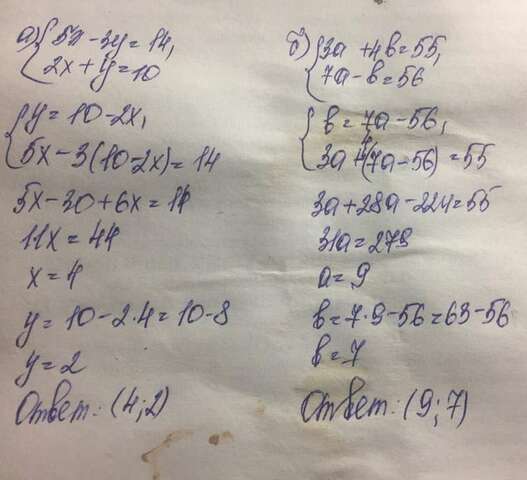 а) { 5x - 3y = 14,
2x + y = 10
{ y = 10 - 2x,
5x - 3(10 - 2x) = 14
5x - 30 + 6x = 14
11x = 44
x = 4
y = 10 - 2·4 = 10 - 8
y = 2
Ответ: (4; 2)
б) { 3a + 4b = 55,
7a - b = 56
{ b = 7a - 56,
3a + 4(7a - 56) = 55
3a + 28a - 224 = 55
31a = 279
a = 9
b = 7·9 - 56 = 63 - 56
b = 7
Ответ: (9; 7)